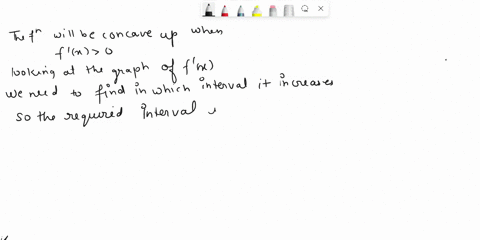 The fⁿ will be concave up when
f'(x) > 0
looking at the graph of f'(x)
we need to find in which interval it increases
so the required interval